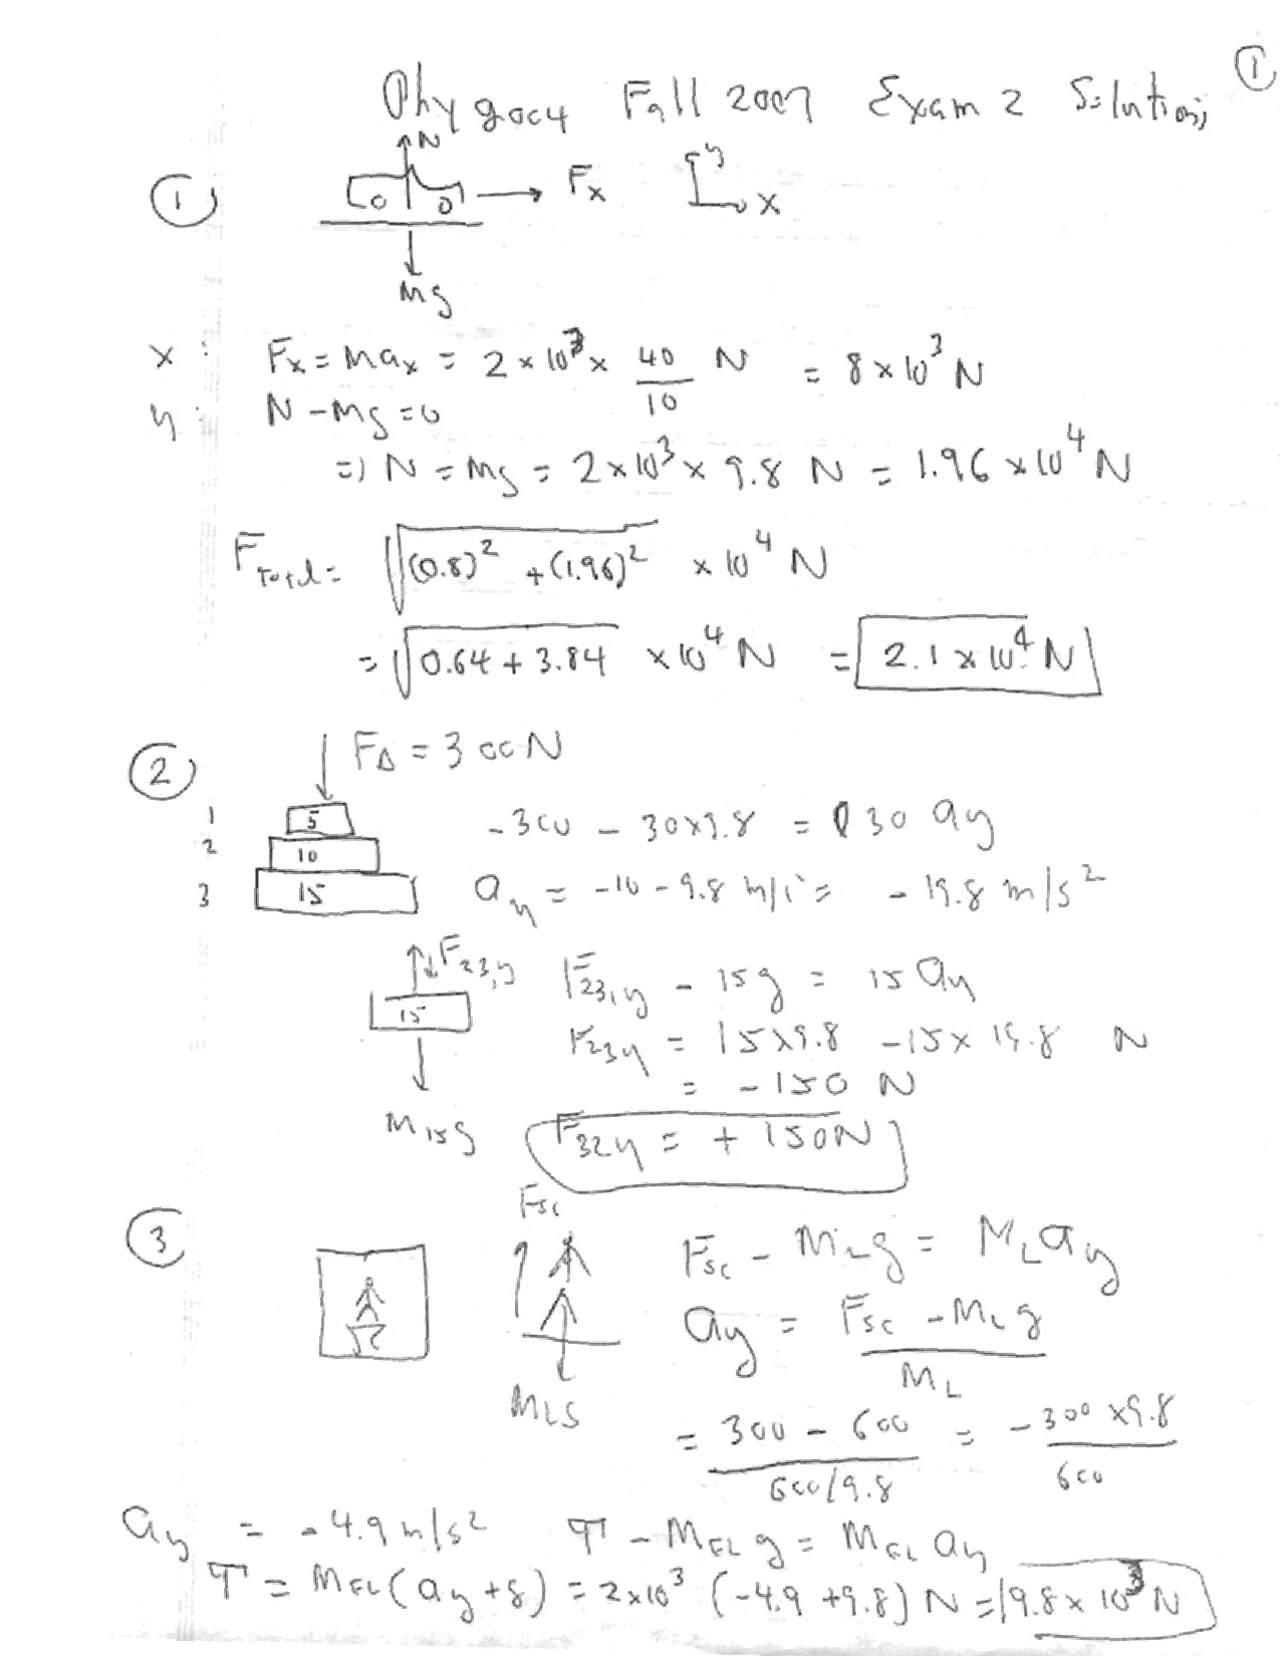 ①
Phy 2004 Fall 2007 Exam 2 Solutions
N
① Fx y x
Mg
x : Fx = Max = 2 × 10³ × 40/10 N = 8 × 10³ N
y : N - Mg = 0
=) N = Mg = 2 × 10³ × 9.8 N = 1.96 × 10⁴ N
F Total = √((0.8)² + (1.96)²) × 10⁴ N
= √(0.64 + 3.84) × 10⁴ N = 2.1 × 10⁴ N
② FA = 300N
1 5 -300 - 30×9.8 = 30 ay
2 10
3 15 ay = -10 - 9.8 m/s² = -19.8 m/s²
F23,y F23,y - 15g = 15 ay
15 F23y = 15×9.8 - 15×19.8 N
= -150 N
M15g F32y = +150N
Fsc
③ Fsc - MLg = MLay
ay = (Fsc - MLg)/ML
MLg
= (300 - 600)/(600/9.8) = (-300 × 9.8)/600
ay = -4.9 m/s² T - MEL g = MEL ay
T = MEL(ay + g) = 2×10³ (-4.9 + 9.8) N = 9.8 × 10³ N